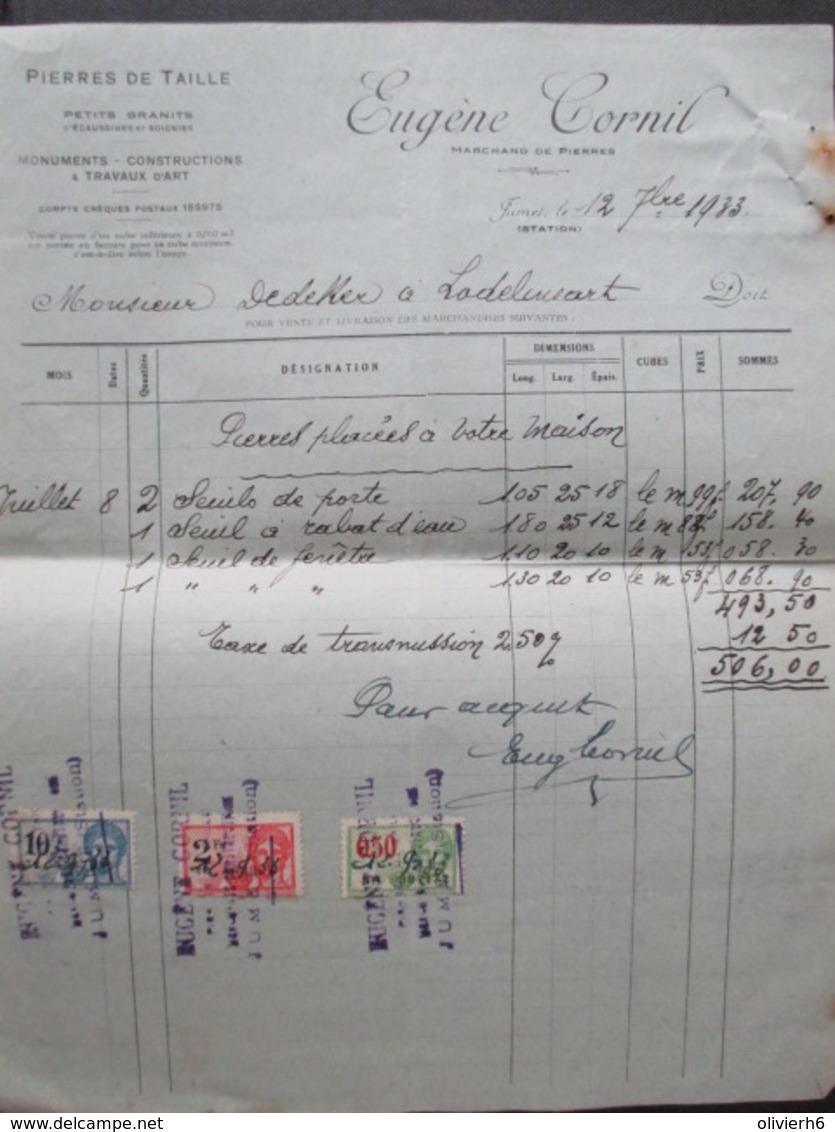 PIERRES DE TAILLE
PETITS GRANITS
D'ÉCAUSSINES ET SOIGNIES
MONUMENTS - CONSTRUCTIONS
& TRAVAUX D'ART
COMPTE CHÈQUES POSTAUX 185975
Toute pierre d'un cube inférieur à
est portée en facture pour ce cube minimum,
c'est-à-dire selon l'usage.
Eugène Cornil
MARCHAND DE PIERRES
Jumet, le 12 7bre 1933.
(STATION)
Monsieur Dedeker à Lodelinsart Doit
POUR VENTE ET LIVRAISON DES MARCHANDISES SUIVANTES :
MOIS Dates Quantités DÉSIGNATION DIMENSIONS CUBES PRIX SOMMES
Long. Larg. Épais.
Pierres placées à votre maison
Juillet 8 2 Seuils de porte 105 25 18 le m 99f 207, 90
1 Seuil à rabat d'eau 180 25 12 le m 88f 158. 40
1 Seuil de fenêtre 110 20 10 le m 53f 058. 30
1 " " " 130 20 10 le m 53f 068. 90
493,50
Taxe de transmission 2,50% 12 50
506,00
Pour acquit
Eug Cornil
10 2 0.50
EUGÈNE CORNIL
(Station)
EUGÈNE CORNIL
EUGÈNE CORNIL
(Station)
olivierh6